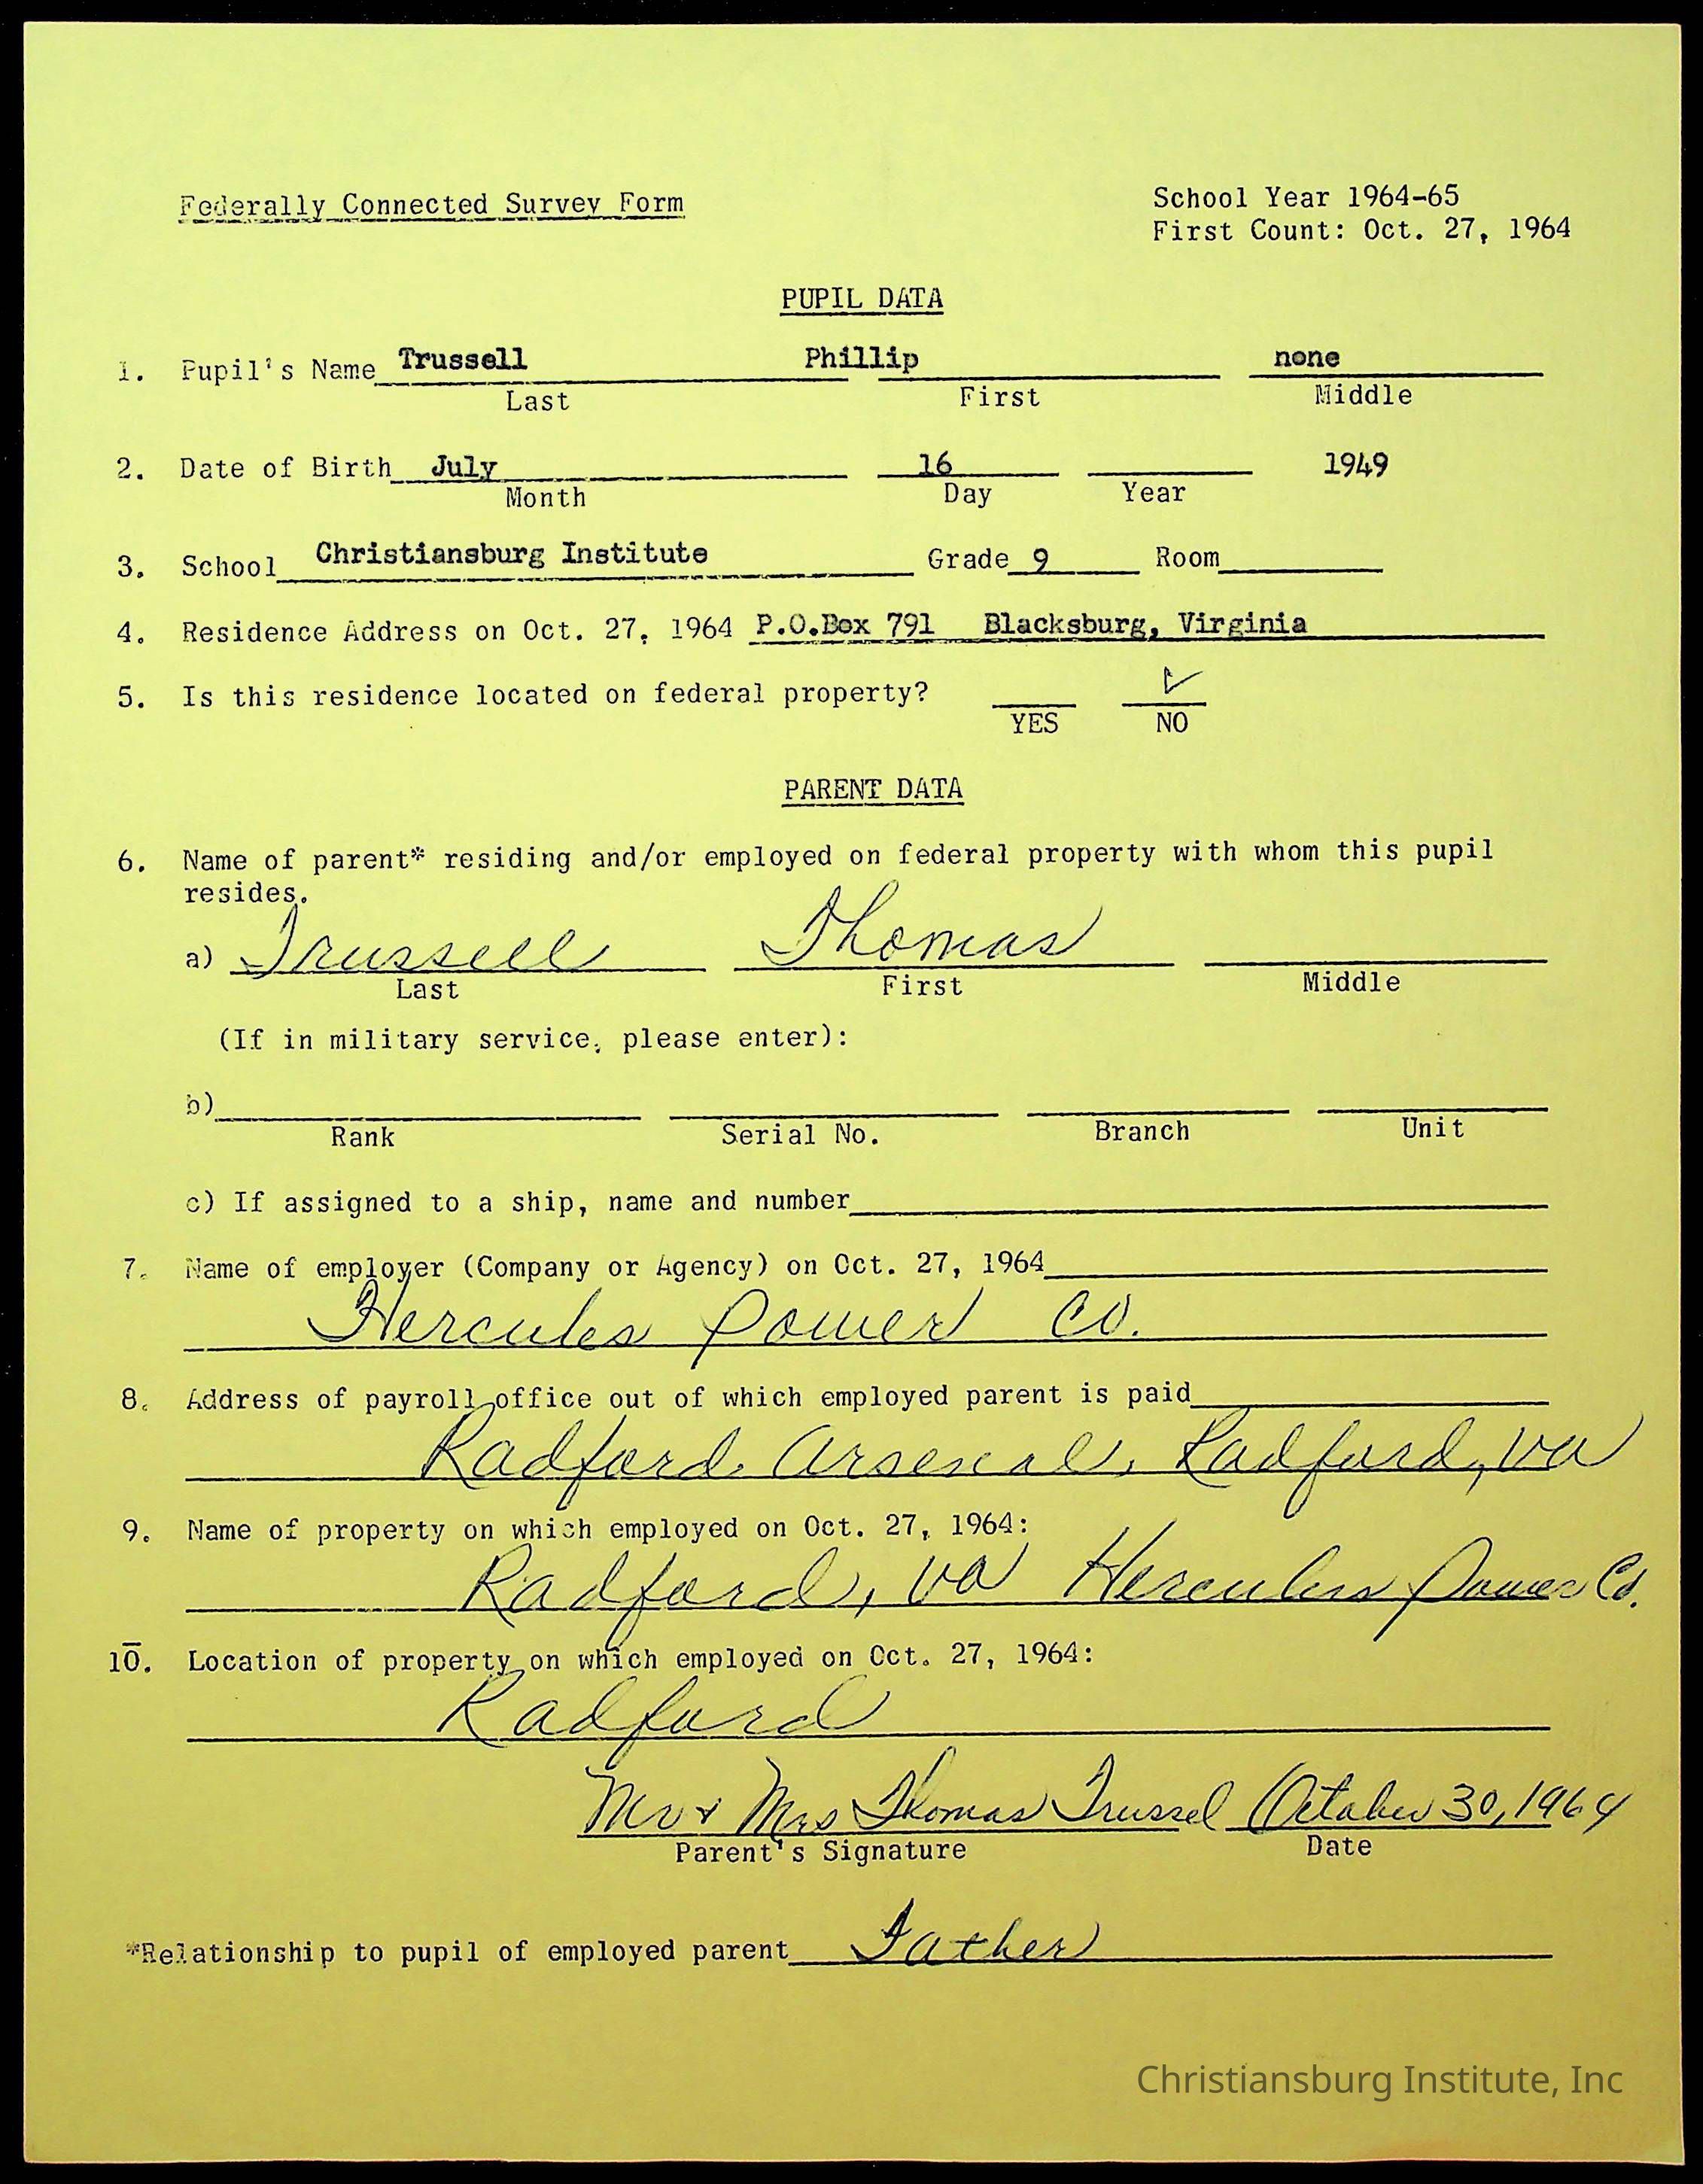 Federally Connected Survey Form
School Year 1964-65
First Count: Oct. 27, 1964
PUPIL DATA
1. Pupil's Name Trussell Phillip none
Last First Middle
2. Date of Birth July 16 1949
Month Day Year
3. School Christiansburg Institute Grade 9 Room
4. Residence Address on Oct. 27, 1964 P.O.Box 791 Blacksburg, Virginia
5. Is this residence located on federal property? ✓
YES NO
PARENT DATA
6. Name of parent* residing and/or employed on federal property with whom this pupil
resides.
a) Trussell Thomas
Last First Middle
(If in military service, please enter):
b)
Rank Serial No. Branch Unit
c) If assigned to a ship, name and number
7. Name of employer (Company or Agency) on Oct. 27, 1964
Hercules Power Co.
8. Address of payroll office out of which employed parent is paid
Radford Arsenal, Radford, Va
9. Name of property on which employed on Oct. 27, 1964:
Radford, Va Hercules Power Co.
10. Location of property on which employed on Oct. 27, 1964:
Radford
Mr & Mrs Thomas Trussel October 30, 1964
Parent's Signature Date
*Relationship to pupil of employed parent Father
Christiansburg Institute, Inc